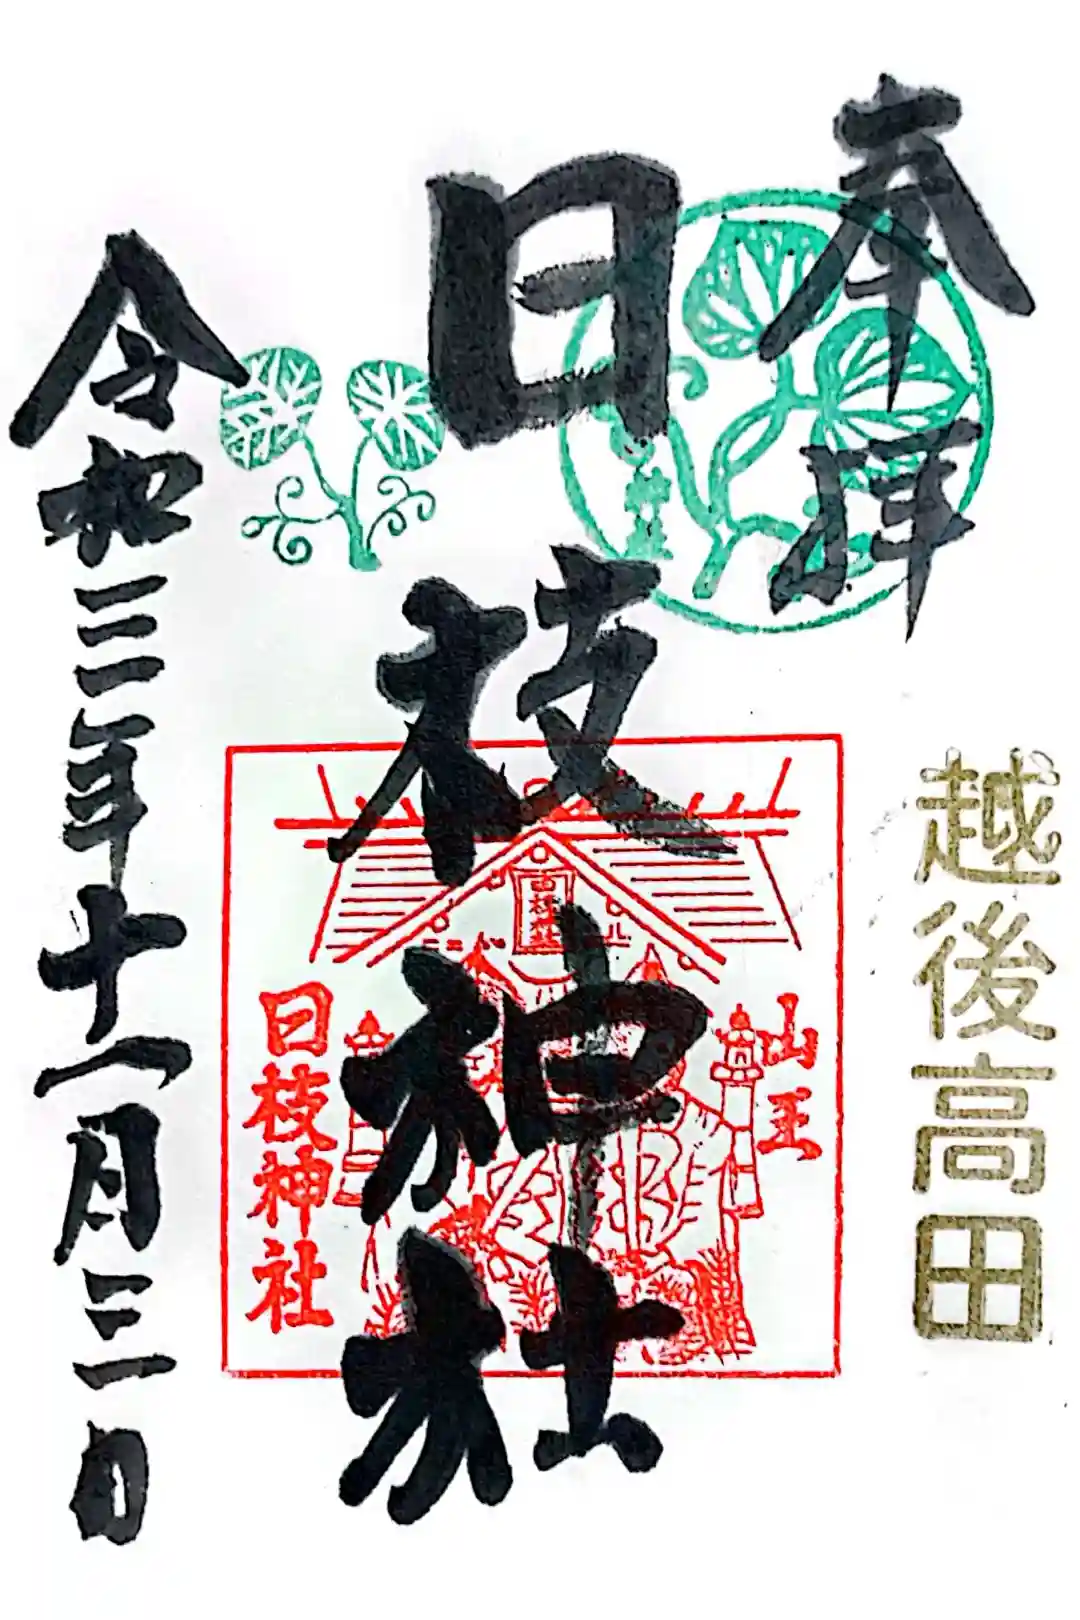 奉拝
越後高田
日枝神社
山王
日枝神社
令和三年十一月三日